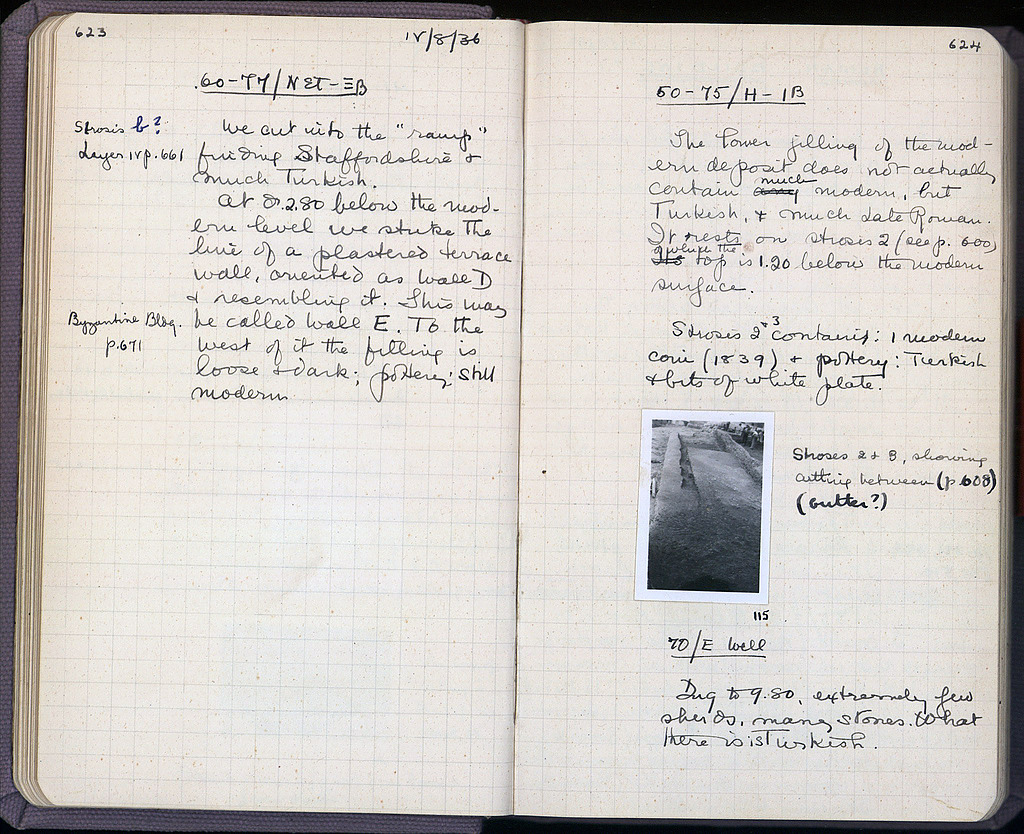 623
IV/8/36
60-77/ΝΣΤ-ΞΒ
Strosis b?
Layer IV p. 661
We cut into the "ramp"
finding Staffordshire &
much Turkish.
At 2.80 below the mod-
ern level we strike the
line of a plastered terrace
wall, oriented as wall D
& resembling it. This may
be called wall E. To the
west of it the filling is
loose & dark; pottery: still
modern
Byzantine Bldg.
p. 671
624
50-75/H-ΙΒ
The lower filling of the mod-
ern deposit does not actually
contain much modern, but
Turkish, & much Late Roman.
It rests on strosis 2 (see p. 600)
which the
top is 1.20 below the modern
surface.
Stroses 2+3 contain: 1 modern
coin (1839) & pottery: Turkish
& bits of white plate.
Stroses 2 & 3, showing
cutting between (p. 608)
(gutter?)
115
70/E Well
Dug to 9.80, extremely few
sherds, many stones. What
there is is Turkish.